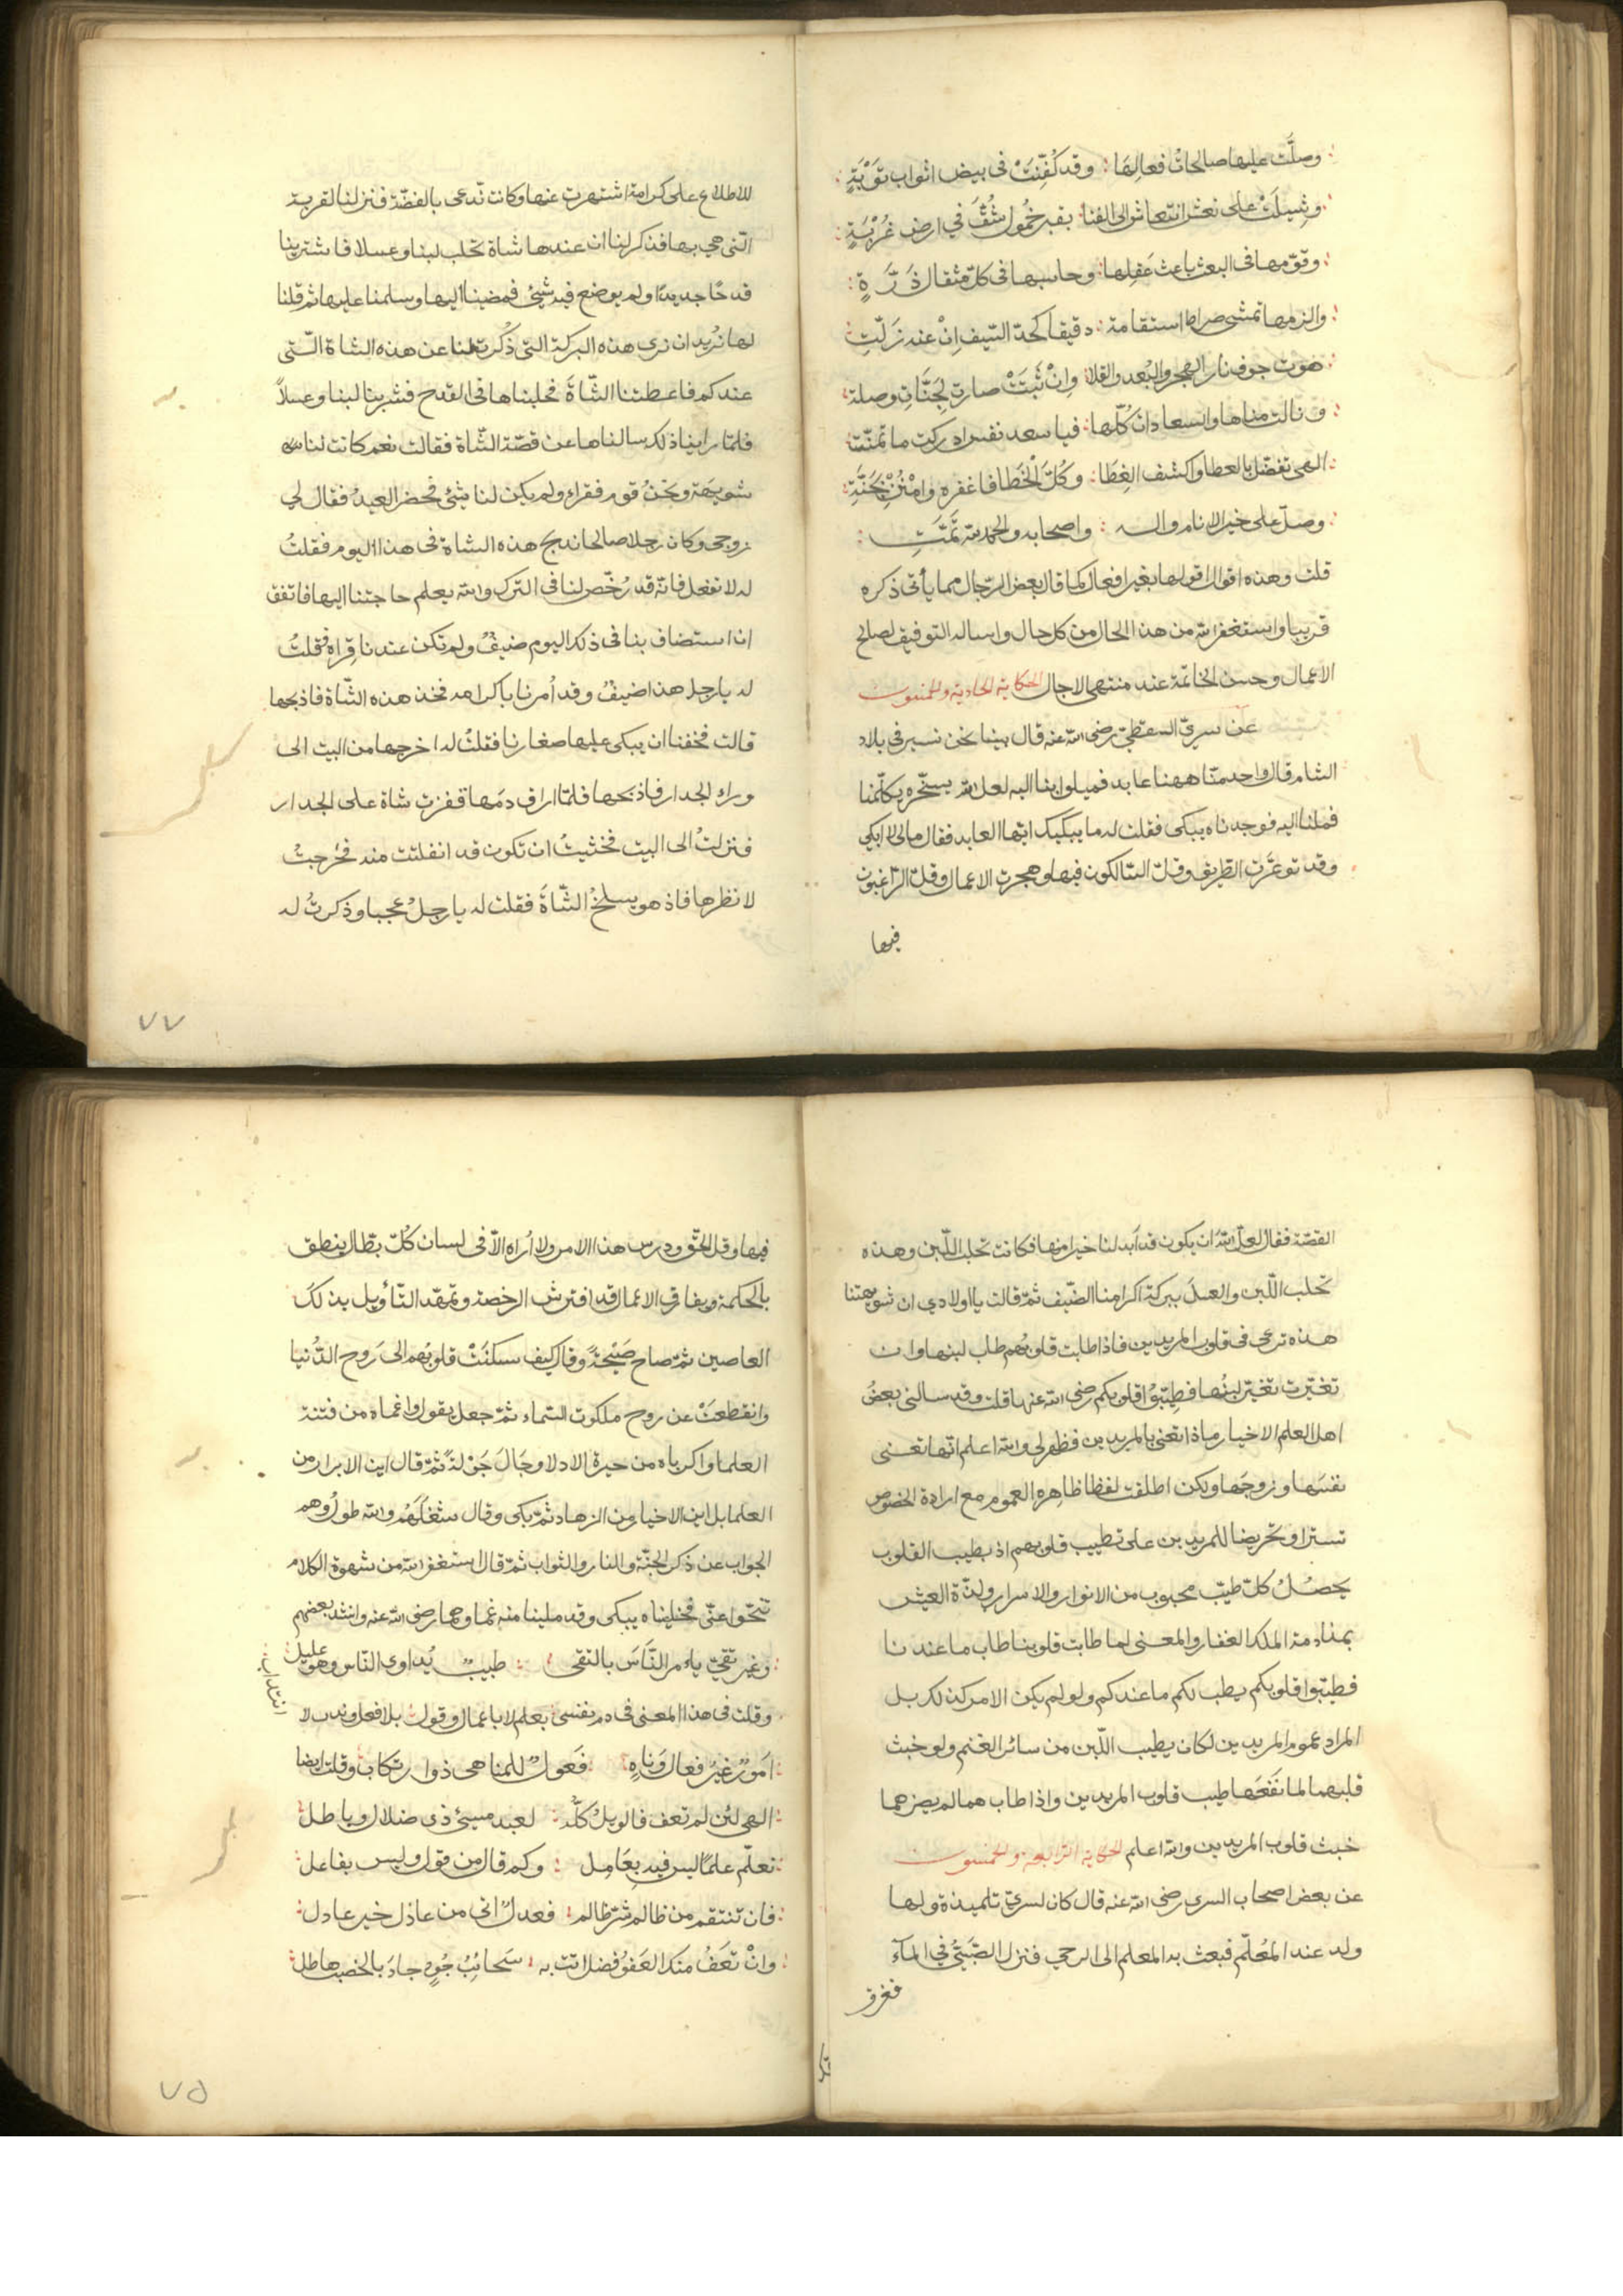 وصلّت عليها صالحات فعالها : وقد كُفّنَتْ في بيض اثواب توبَةٍ
وشِيلَتْ على نعش انتعاش الى الفنا بقبر خمول شُقَّ في ارض غُرْبَةٍ
وقوّمها في البعث باعث عَفِلها وحاسبها في كل مثقال ذَرّةٍ
والزمها تمشي صراط استقامة دقيقا كحدّ السّيف اِنْ عنه زَلّتِ
هَوت جوف نار الهجر والبُعد والقلا وإنْ ثَبَتَتْ صارت لجَنّاتِ وصلة
ونالت مناها والسعادات كُلّها فيا سعد نفس ادركت ما تمنّت
الهي تفضّل بالعطا واكشف الغِطَا وكُلَّ الخَطَا فاغفره وامْنُنْ بجَنّةِ
وصلّ على خير الانام واله : واصحابه والحمد لله تَمَّتِ
قلت وهذه اقوال اقولها بغير افعال كما قال بعض الرّجال مما يأتي ذكره
قريبا واستغفر الله من هذا الحال من كل حال واساله التوفيق لصالح
الاعمال وحسن الخاتمة عند منتهى الاجال الحكاية الحادية والخمسون
عن سريّ السقطيّ رضي الله عنه قال بينا نحن نسير في بلاد
الشام قال واحد منّا ههنا عابد فميلوا بنا اليه لعل الله يسخّره يكلّمنا
فملنا اليه فوجدناه يبكى فقلت له ما يبكيك ايها العابد فقال مالي لا ابكي
وقد توعّرَت الطريق وقلّ السّالكون فيها وهجرت الاعمال وقلّ الرّاغبون
فيها
للاطلاع على كرامة اشتهرت عنها وكانت تُدعى بالفضّة فنزلنا القرية
الّتي هي بها فذكر لنا ان عندها شاة تحلب لبنا وعسلا فاشترينا
قدحًا جديدًا ولم يوضع فيه شيئ فمضينا اليها وسلمنا عليها ثم قلنا
لها نُريد ان نرى هذه البركة التي ذُكرت لنا عن هذه الشاة الّتي
عندكم فاعطتنا الشّاةَ فحلبناها في القدح فشربنا لبنا وعسلًا
فلمّا راينا ذلك سالناها عن قصّة الشّاة فقالت نعم كانت لنا
شويهة ونحنُ قوم فقراء ولم يكن لنا شئ فحضر العيدُ فقال لي
زوجي وكان رجلا صالحا نذبح هذه الشاة في هذا اليوم فقلتُ
له لا تفعل فانّه قد رُخّص لنا في الترك والله يعلم حاجتنا اليها فاتفق
ان استضاف بنا في ذلك اليوم ضيفٌ ولم تكن عندنا قِراه فقلتُ
له يا رجل هذا ضيفٌ وقد اُمرنا باكرامه فخذ هذه الشّاة فاذبحها
قالت فخفنا ان يبكى عليها صغارنا فقلتُ له اخرجها من البيت الى
وراء الجدار فاذبحها فلمّا اراق دمَها قفزت شاة على الجدار
فنزلتْ الى البيت فخشيتُ ان تكون قد انفلتت منه فخرجتُ
لانظرها فاذ هو يسلخُ الشّاةَ فقلت له يا رجلُ عجبا وذكرتُ له
٧٧
القصّة فقال لعلّ اللهَ ان يكون قد اَبدلنا خيرا منها فكانت تحلب اللّبن وهذه
تحلب اللّبن والعسلَ ببركة اكرامنا الضّيف ثمّ قالت يا اولادي ان شويهتنا
هذه ترعى في قلوب المريدين فاذا طابت قلوبُهم طاب لبنها وان
تغيّرت تغيّر لبنُها فطِيّبُوا قلوبكم رضي الله عنها قلت وقد سالني بعضُ
اهل العلم الاخيار ماذا تعني بالمريدين فظهر لي والله اعلم انّها تعني
نفسَها وزوجَها ولكن اطلقت لفظا ظاهره العموم مع ارادة الخصوص
تسترا وتحريضا للمريدين على تطييب قلوبهم اذ بطيب القلوب
يحصُلُ كلّ طيّب محبوب من الانوار والاسرار ولذّة العيش
بمنادمة الملك الغفار والمعنى لما طابت قلوبنا طاب ما عندنا
فطيّبوا قلوبكم يطب لكم ما عندكم ولو لم يكن الامر كذلك بل
المراد عموم المريدين لكان يطيب اللّبن من سائر الغنم ولو خبث
قلبهما لما نَفَعَها طيب قلوب المريدين واذا طاب هما لم يضرهما
خبث قلوب المريدين والله اعلم الحكاية الرابعة والخمسون
عن بعض اصحاب السري رضي الله عنه قال كان لسريّ تلميذة ولها
ولد عند المُعَلّم فبعث به المعلم الى الرحى فنزل الصّبيّ في المآء
فغرق
فيها وقل الحقّ ودرس هذا الامر ولا اُراه الّا في لسان كُلّ بطّال ينطق
بالحكمة ويفارق الاعمال قد افترش الرخصة وتمهّد التّأويل بذلكَ
العاصين ثمّ صاح صَيْحةً وقال كيف سكنَتْ قلوبُهم الى رَوح الدُّنيا
وانقطعَتْ عن روح ملكوت السّماء ثمّ جعل يقول واغماه من فتنة
العلما واكرباه من حيرة الادلا وجَالَ جَوْلةً ثمّ قال اين الابرار من
العلما بل اين الاخيار من الزهاد ثمّ بكى وقال شغَلَهُم والله طول وهم
الجواب عن ذكر الجنّة والنار والثواب ثمّ قال استغفر الله من شهوة الكلام
تنحّوا عنّي فخليناه يبكى وقد ملينا منه غما وهما رضي الله عنه وانشد بعضهم
وغير تقيّ يامر النَّاسَ بالتقى : طبيب يُداوى النّاس وهو عليل
وقلت في هذا المعنى في ذم نفسي بعلم لا باعمال وقول بلا فعل
اَمورٌ غيرُ فعال وَناهٍ : فَعولٌ للمناهي ذوا رتكاب وقلت ايضا
الهي لئن لم تعف فالويلُ كلّه : لعبد مسيئ ذي ضلال وباطل
تعلّم علمًا ليس فيه بِعَامِل : وكم قال من قول وليس بفاعل
فان تنتقم من ظالم شرّ ظالم : فعدلٌ اتى من عادل خير عادل
وانْ تعَفُ منك العَفوُ فضل اتت به سَحائِبُ جُودٍ جادَ بالخصب هاطل
٧٥